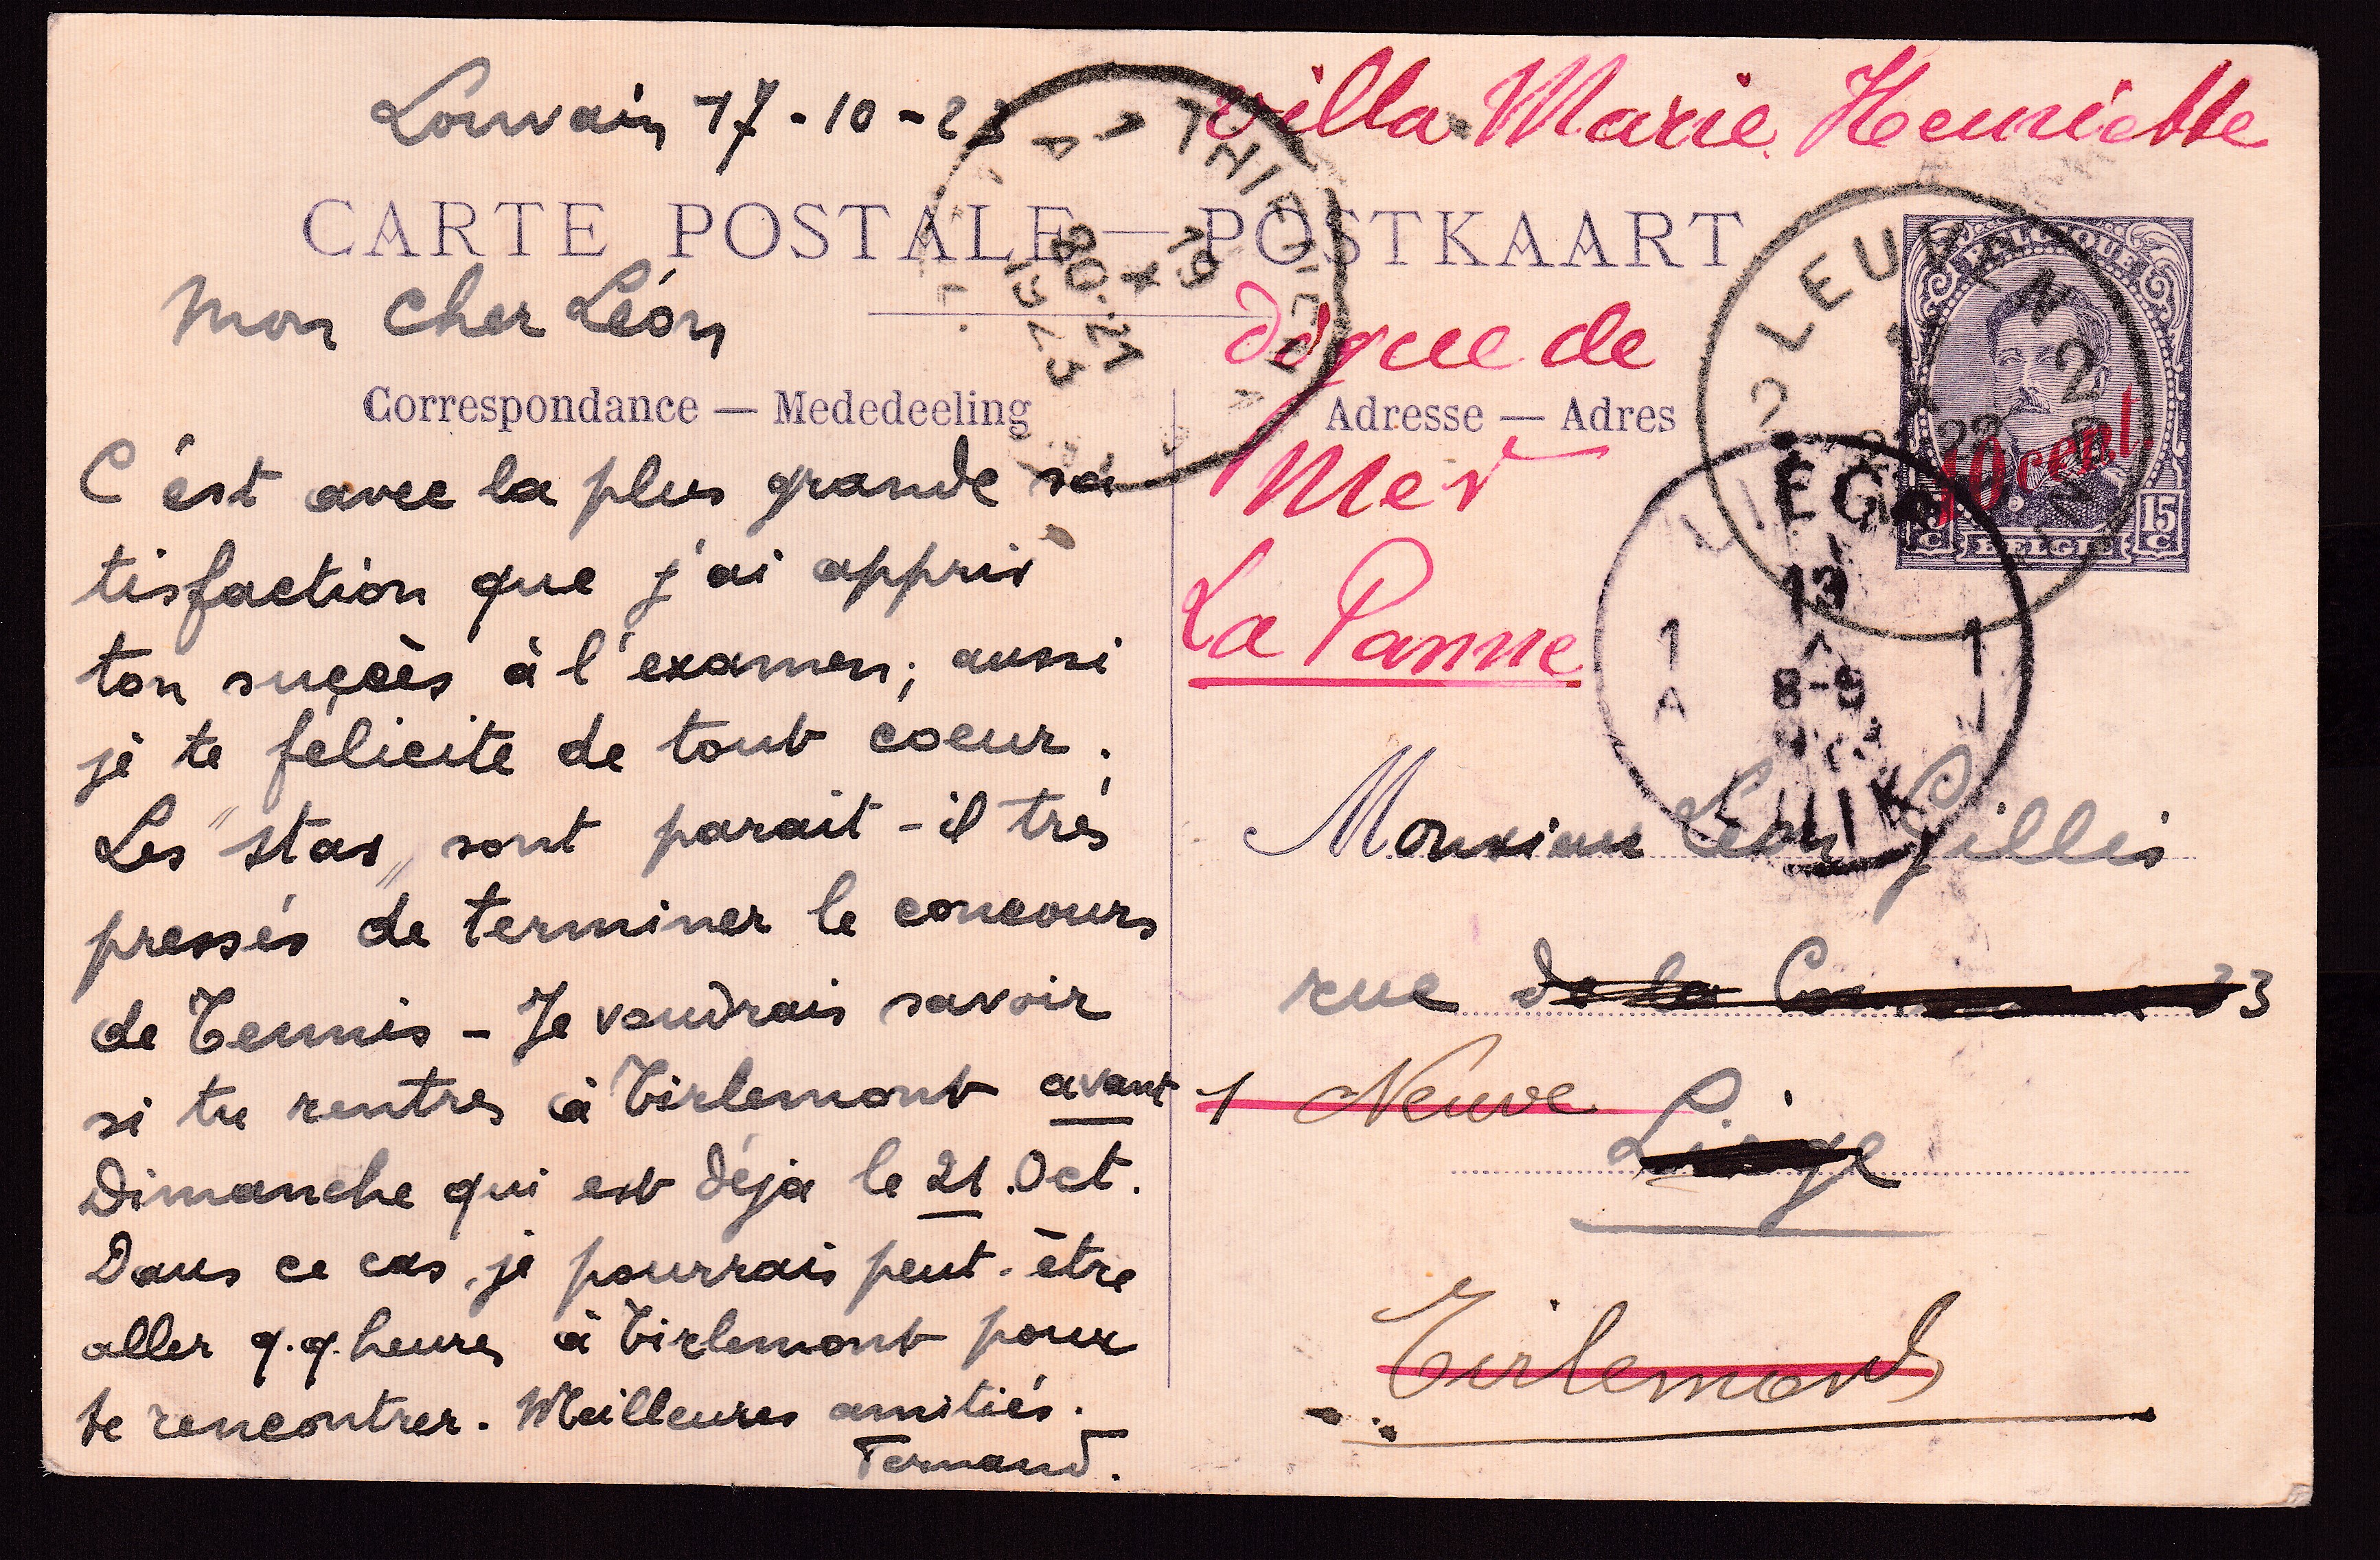 Louvain 17-10-23
Villa Marie Henriette
CARTE POSTALE — POSTKAART
Mon cher Léon
digue de
Correspondance — Mededeeling
Adresse — Adres
Mer
La Panne
C'est avec la plus grande sa
tisfaction que j'ai appris
ton succès à l'examen; aussi
je te félicite de tout coeur.
Les "stas" sont parait-il très
pressés de terminer le concours
de Tennis - Je voudrais savoir
si tu rentres à Tirlemont avant
Dimanche qui est déjà le 21. Oct.
Dans ce cas, je pourrais peut-être
aller q.q. heures à Tirlemont pour
te rencontrer. Meilleures amitiés.
Fernand.
Monsieur Léon Gillis
rue de la 33
1 Neuve
Liège
Tirlemont
BELGIQUE
10 cent.
15 C
BELGIE
2 LEUVEN 2
LIEGE
1 1
A
8-9
LUIK
THIENEN
19
X
20-21
1923